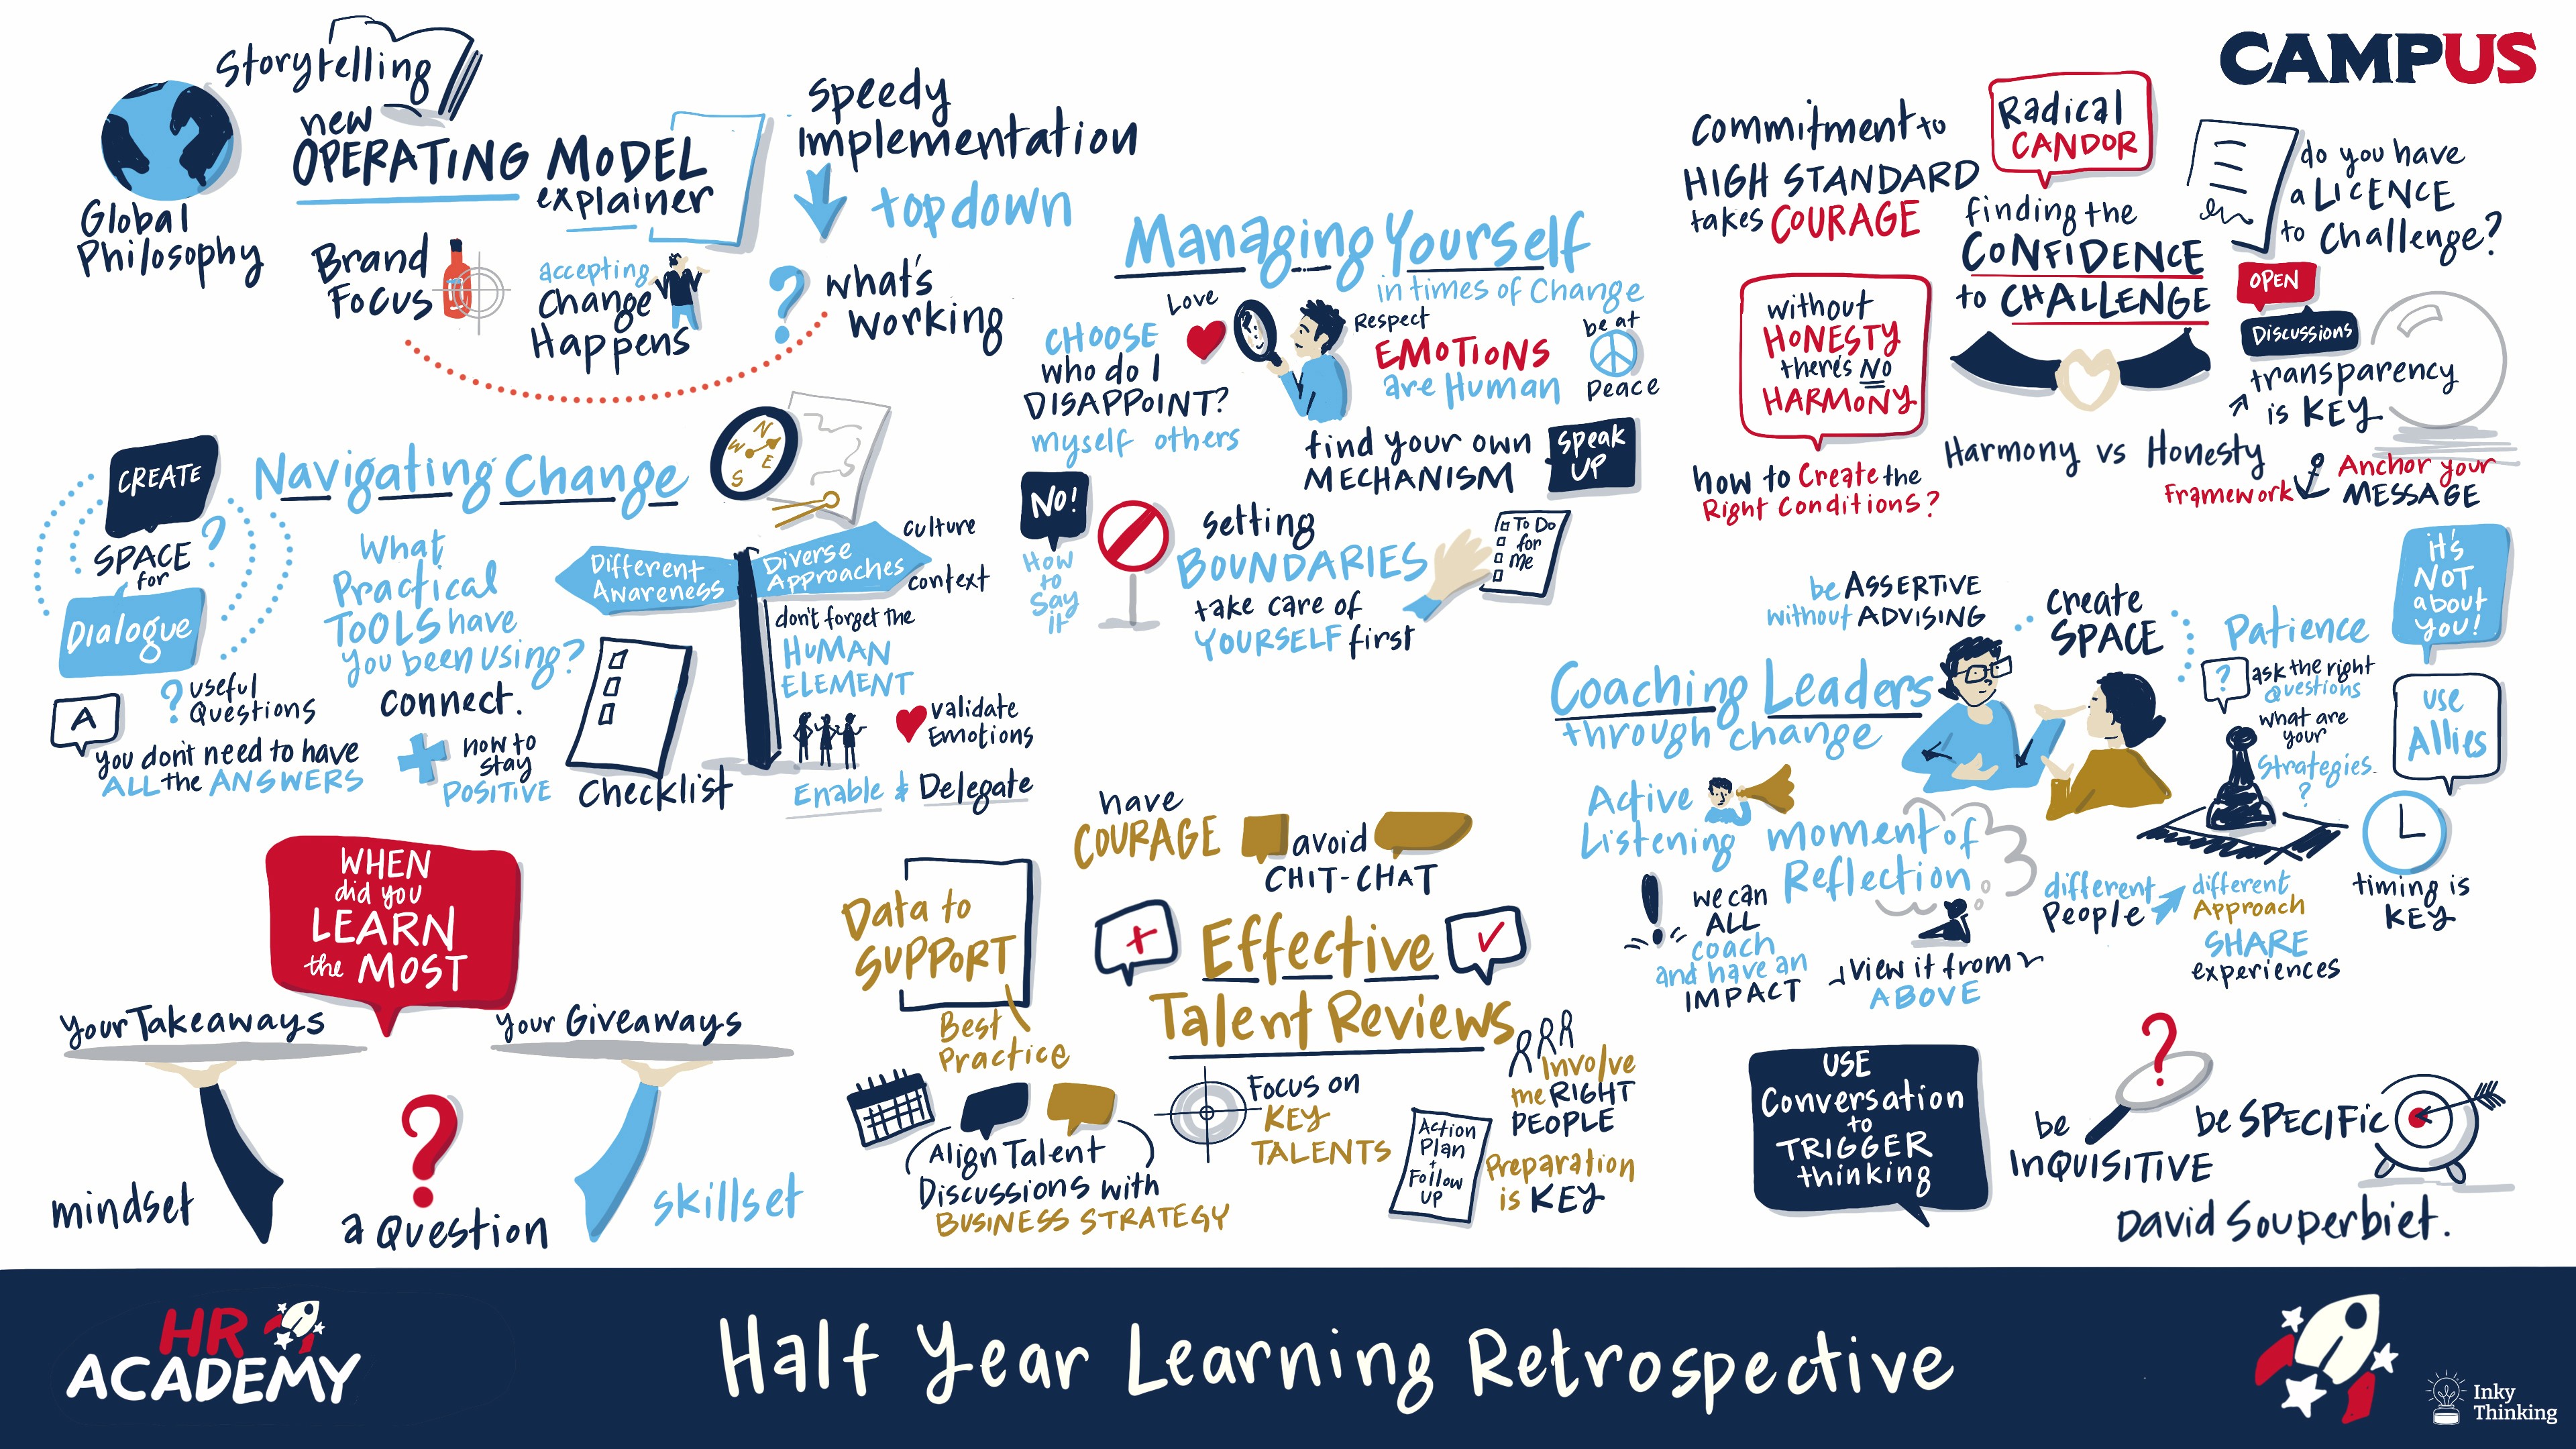 CAMPUS
Storytelling
new
OPERATING MODEL
explainer
Global
Philosophy
Brand
Focus
accepting
Change
Happens
Speedy
Implementation
top down
?
what's
working
Managing Yourself
in times of Change
Love
CHOOSE
who do I
DISAPPOINT?
myself others
Respect
EMOTIONS
are Human
be at
Peace
find your own
MECHANISM
Speak
UP
No!
How
to
Say
it
setting
BOUNDARIES
take care of
YOURSELF first
To Do
for
me
Commitment to
HIGH STANDARD
takes COURAGE
Radical
CANDOR
finding the
CONFIDENCE
to CHALLENGE
do you have
a LICENCE
to Challenge?
OPEN
Discussions
transparency
is KEY
without
HONESTY
there's NO
HARMONY
how to Create the
Right Conditions?
Harmony vs Honesty
Framework
Anchor your
MESSAGE
Navigating Change
N
W
E
S
CREATE
SPACE
for
Dialogue
?
What
Practical
TOOLS have
you been using?
? useful
Questions
A
you don't need to have
ALL the ANSWERS
Connect.
how to
stay
POSITIVE
Checklist
Different
Awareness
Diverse
Approaches
culture
context
don't forget the
HUMAN
ELEMENT
validate
Emotions
Enable & Delegate
be ASSERTIVE
without ADVISING
Create
SPACE
Coaching Leaders
through change
Patience
it's
NOT
about
you!
?
ask the right
Questions
what are
your
Strategies
?
use
Allies
Active
Listening
moment of
Reflection
we can
ALL
coach
and have an
IMPACT
View it from
ABOVE
different
People
different
Approach
SHARE
experiences
timing is
KEY
WHEN
did you
LEARN
the MOST
your Takeaways
your Giveaways
mindset
?
a Question
skillset
have
COURAGE
avoid
CHIT-CHAT
Data to
SUPPORT
Best
Practice
+
Effective
Talent Reviews
Align Talent
Discussions with
BUSINESS STRATEGY
Focus on
KEY
TALENTS
Involve
the RIGHT
PEOPLE
Action
Plan
+
Follow
UP
Preparation
is KEY
USE
Conversation
to
TRIGGER
thinking
?
be
INQUISITIVE
be SPECIFIC
David Souperbiet.
HR
ACADEMY
Half Year Learning Retrospective
Inky
Thinking